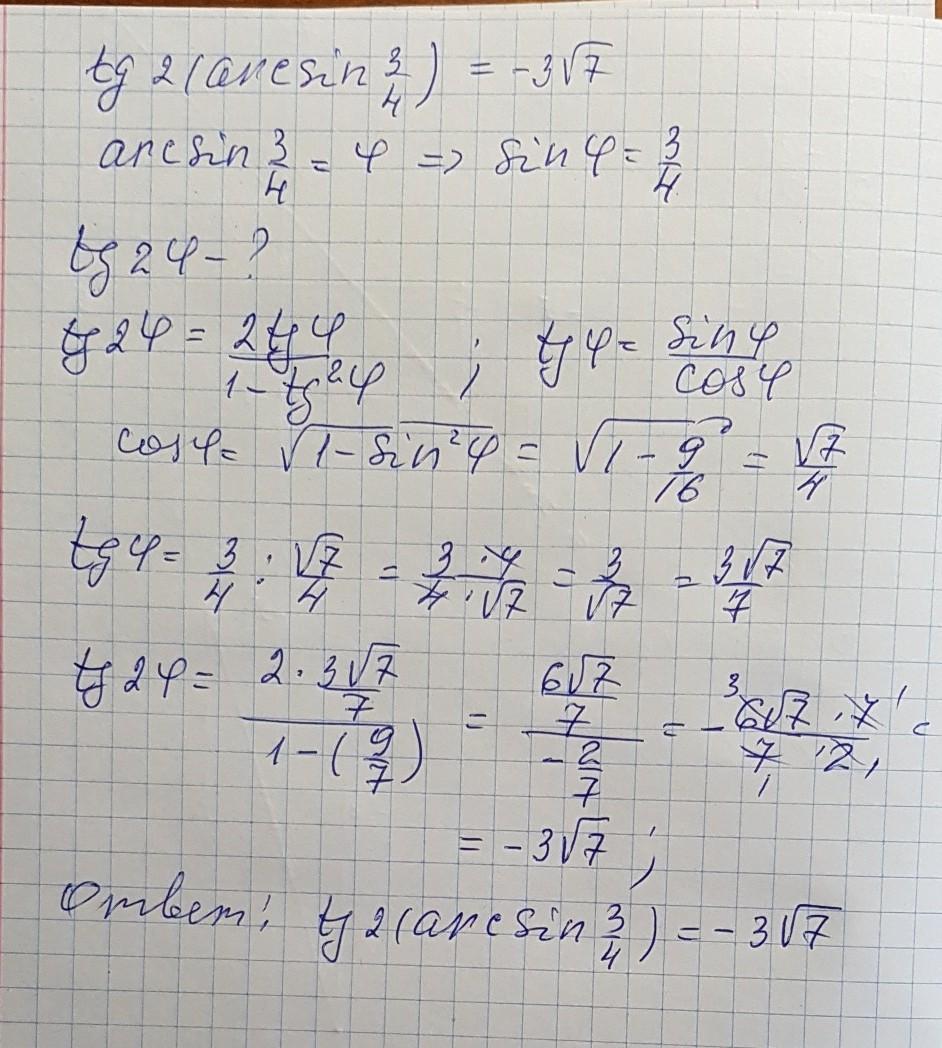 tg 2(arcsin 3/4) = -3√7
arcsin 3/4 = φ => sin φ = 3/4
tg 2φ - ?
tg 2φ = 2tgφ / 1-tg²φ ; tgφ = sinφ / cosφ
cosφ = √1-sin²φ = √1-9/16 = √7/4
tgφ = 3/4 : √7/4 = 3·4 / 4·√7 = 3/√7 = 3√7/7
tg 2φ = 2·3√7/7 / 1-(9/7) = 6√7/7 / -2/7 = - ³6√7·7¹ / 7₁·2₁ =
= -3√7 ;
Ответ: tg 2(arcsin 3/4) = -3√7